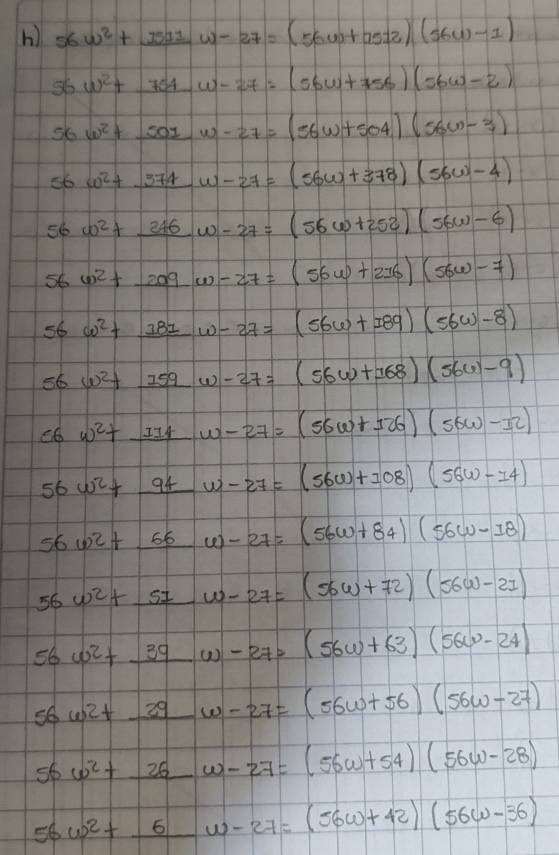 h) 56 w² + 1511 w - 27 = (56w + 1512) (56w - 1)
56 w² + 754 w - 27 = (56w + 756) (56w - 2)
56 w² + 501 w - 27 = (56w + 504) (56w - 3)
56 w² + 374 w - 27 = (56w + 378) (56w - 4)
56 w² + 246 w - 27 = (56w + 252) (56w - 6)
56 w² + 209 w - 27 = (56w + 216) (56w - 7)
56 w² + 181 w - 27 = (56w + 189) (56w - 8)
56 w² + 159 w - 27 = (56w + 168) (56w - 9)
56 w² + 114 w - 27 = (56w + 126) (56w - 12)
56 w² + 94 w - 27 = (56w + 108) (56w - 14)
56 w² + 66 w - 27 = (56w + 84) (56w - 18)
56 w² + 51 w - 27 = (56w + 72) (56w - 21)
56 w² + 39 w - 27 = (56w + 63) (56w - 24)
56 w² + 29 w - 27 = (56w + 56) (56w - 27)
56 w² + 26 w - 27 = (56w + 54) (56w - 28)
56 w² + 6 w - 27 = (56w + 42) (56w - 36)